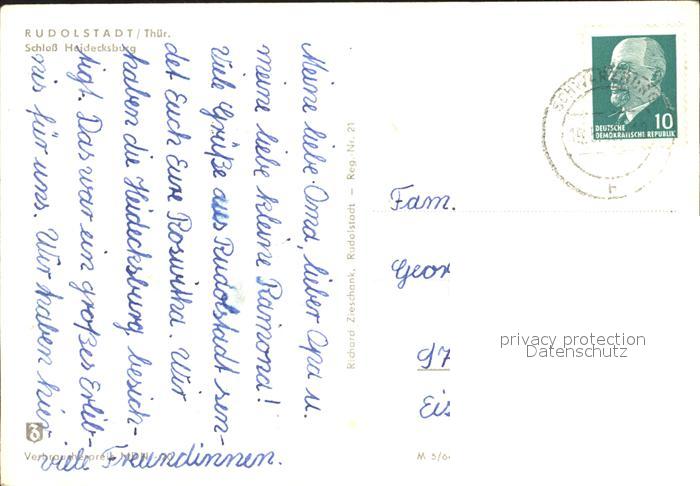 RUDOLSTADT/Thür.
Schloß Heidecksburg
Meine liebe Oma, lieber Opa u.
meine liebe kleine Ramona!
Viele Grüße aus Rudolstadt sen-
det Euch Eure Roswitha. Wir
haben die Heidecksburg besich-
tigt. Das war ein großes Erleb-
nis für uns. Wir haben hier
viele Freundinnen.
Verbraucherpreis MDN
Richard Zieschank, Rudolstadt — Reg. Nr. 21
M 5/6
10
DEUTSCHE
DEMOKRATISCHE REPUBLIK
Fam.
Geor
97
Eis
privacy protection
Datenschutz